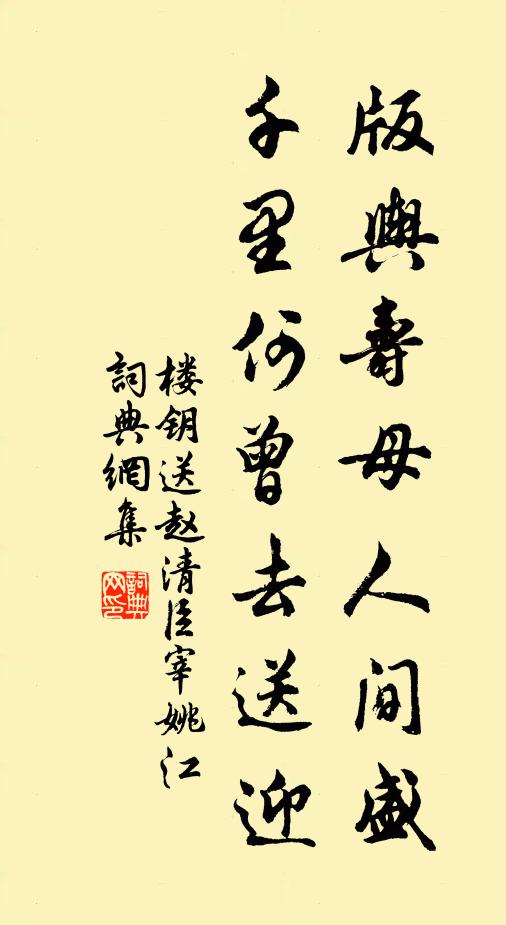 版輿壽母人间盛
千里何曾去送迎
楼钥送赵清臣宰姚江
詞典網集
詞典網印